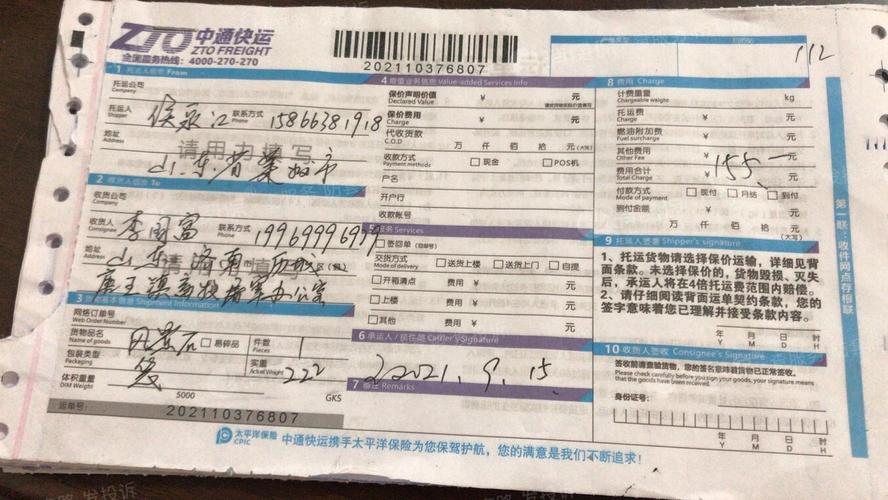 ZTO 中通快运
ZTO FREIGHT
全国服务热线: 4000-270-270
202110376807
112
1 托运人信息 From
托运公司
Company
托运人
Shipper
侯永江
联系方式
Phone
15866381918
地址
Address
请用力填写
山东省莱州市
2 收货人信息 To
收货公司
Company
收货人
Consignee
李国富
联系方式
Phone
地址
Address
山东济南历城
唐王镇
办公室
3 货物基本信息 Shipment Information
网络订单号
Web Order Number
货物品名
Name of goods
风景石
易碎品
件数
Pieces
1
包装类型
Packaging
实重
Actual Weight
222
体积重量
DIM Weight
5000
GKS
运单号:
202110376807
4 增值业务信息 Value-added Services Info
保价声明价值 ¥ 元
Declared Value
保价费用 ¥ 元
Charge
代收货款
C.O.D
万 仟 佰 拾 元(大写)
收款方式
Payment methods
现金
POS机
户名
开户行
收款帐号
5 服务 Services
签回单(回单号)
交货方式
Mode of delivery
送货上楼
送货上门
自提
开箱清点 费用 ¥ 元
上楼 费用 ¥ 元
其他 费用 ¥ 元
6 承运人/揽件员 Carrier's Signature
2021.9.15
7 备注 Remarks
8 费用 Charge
计费重量 kg
Chargeable weight
托运费 ¥ 元
Charge
燃油附加费 ¥ 元
Fuel surcharge
其他费用 ¥ 元
Other Fee
费用合计 ¥ 155 元
Total Charge
付款方式
Mode of payment
现付
月结
到付
到付金额 ¥ 元
万 仟 佰 拾 元
(大写)
9 托运人签署 Shipper's signature
1、托运货物请选择保价运输，详细见背
面条款。未选择保价的，货物毁损、灭失
后，承运人将在4倍托运费范围内赔偿。
2、请仔细阅读背面运单契约条款，您的
签字意味着您已理解并接受条款内容。
年 月 日 时
Y M D H
10 收货人签收 Consignee's Signature
签收前请查验货物，您的签名意味货物已正常签收。
Please check carefully before you sign your goods, your signature means
that the goods have been received.
身份证号:
年 月 日 时
Y M D H
第一联:收件网点存根联
太平洋保险
CPIC
中通快运携手太平洋保险为您保驾护航，您的满意是我们不断追求!